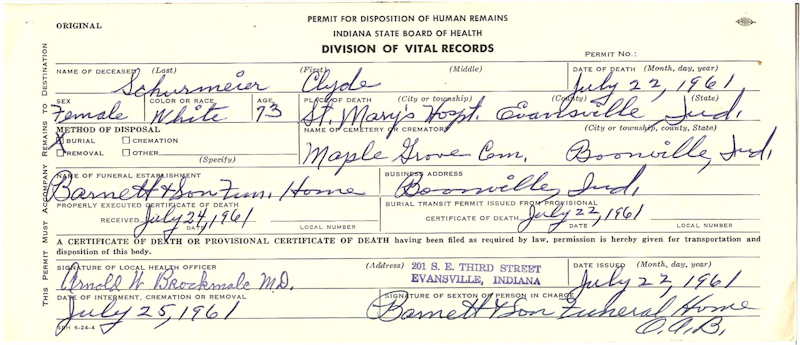 ORIGINAL
PERMIT FOR DISPOSITION OF HUMAN REMAINS
INDIANA STATE BOARD OF HEALTH
DIVISION OF VITAL RECORDS
PERMIT NO.:
THIS PERMIT MUST ACCOMPANY REMAINS TO DESTINATION
NAME OF DECEASED (Last) (First) (Middle) DATE OF DEATH (Month, day, year)
Schurmeier Clyde July 22, 1961
SEX COLOR OR RACE AGE PLACE OF DEATH (City or township) (County) (State)
Female White 73 St. Mary's Hospt. Evansville, Ind.
METHOD OF DISPOSAL NAME OF CEMETERY OR CREMATORY (City or township, county, State)
X BURIAL CREMATION
REMOVAL OTHER
(Specify)
Maple Grove Cem. Boonville, Ind.
NAME OF FUNERAL ESTABLISHMENT BUSINESS ADDRESS
Barnett & Son Fun. Home Boonville, Ind.
PROPERLY EXECUTED CERTIFICATE OF DEATH BURIAL TRANSIT PERMIT ISSUED FROM PROVISIONAL
RECEIVED July 24, 1961 CERTIFICATE OF DEATH July 22, 1961
DATE LOCAL NUMBER DATE LOCAL NUMBER
A CERTIFICATE OF DEATH OR PROVISIONAL CERTIFICATE OF DEATH having been filed as required by law, permission is hereby given for transportation and
disposition of this body.
SIGNATURE OF LOCAL HEALTH OFFICER (Address) 201 S. E. THIRD STREET DATE ISSUED (Month, day, year)
Arnold W Brockmole M.D. EVANSVILLE, INDIANA July 22, 1961
DATE OF INTERMENT, CREMATION OR REMOVAL SIGNATURE OF SEXTON OR PERSON IN CHARGE
July 25, 1961 Barnett & Son Funeral Home
O.A.B.
6-24-4